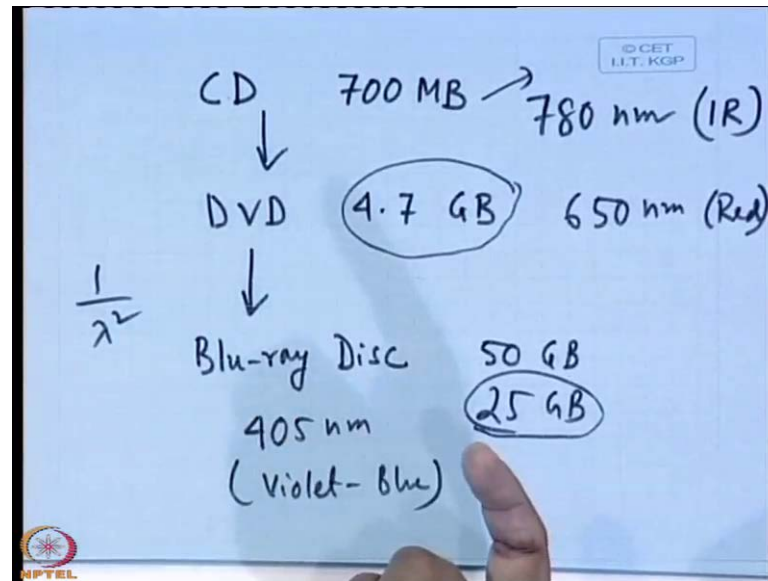 © CET
I.I.T. KGP
CD 700 MB → 780 nm (IR)
↓
DVD 4.7 GB 650 nm (Red)
↓
1/λ²
Blu-ray Disc 50 GB
25 GB
405 nm
(Violet-Blue)
NPTEL